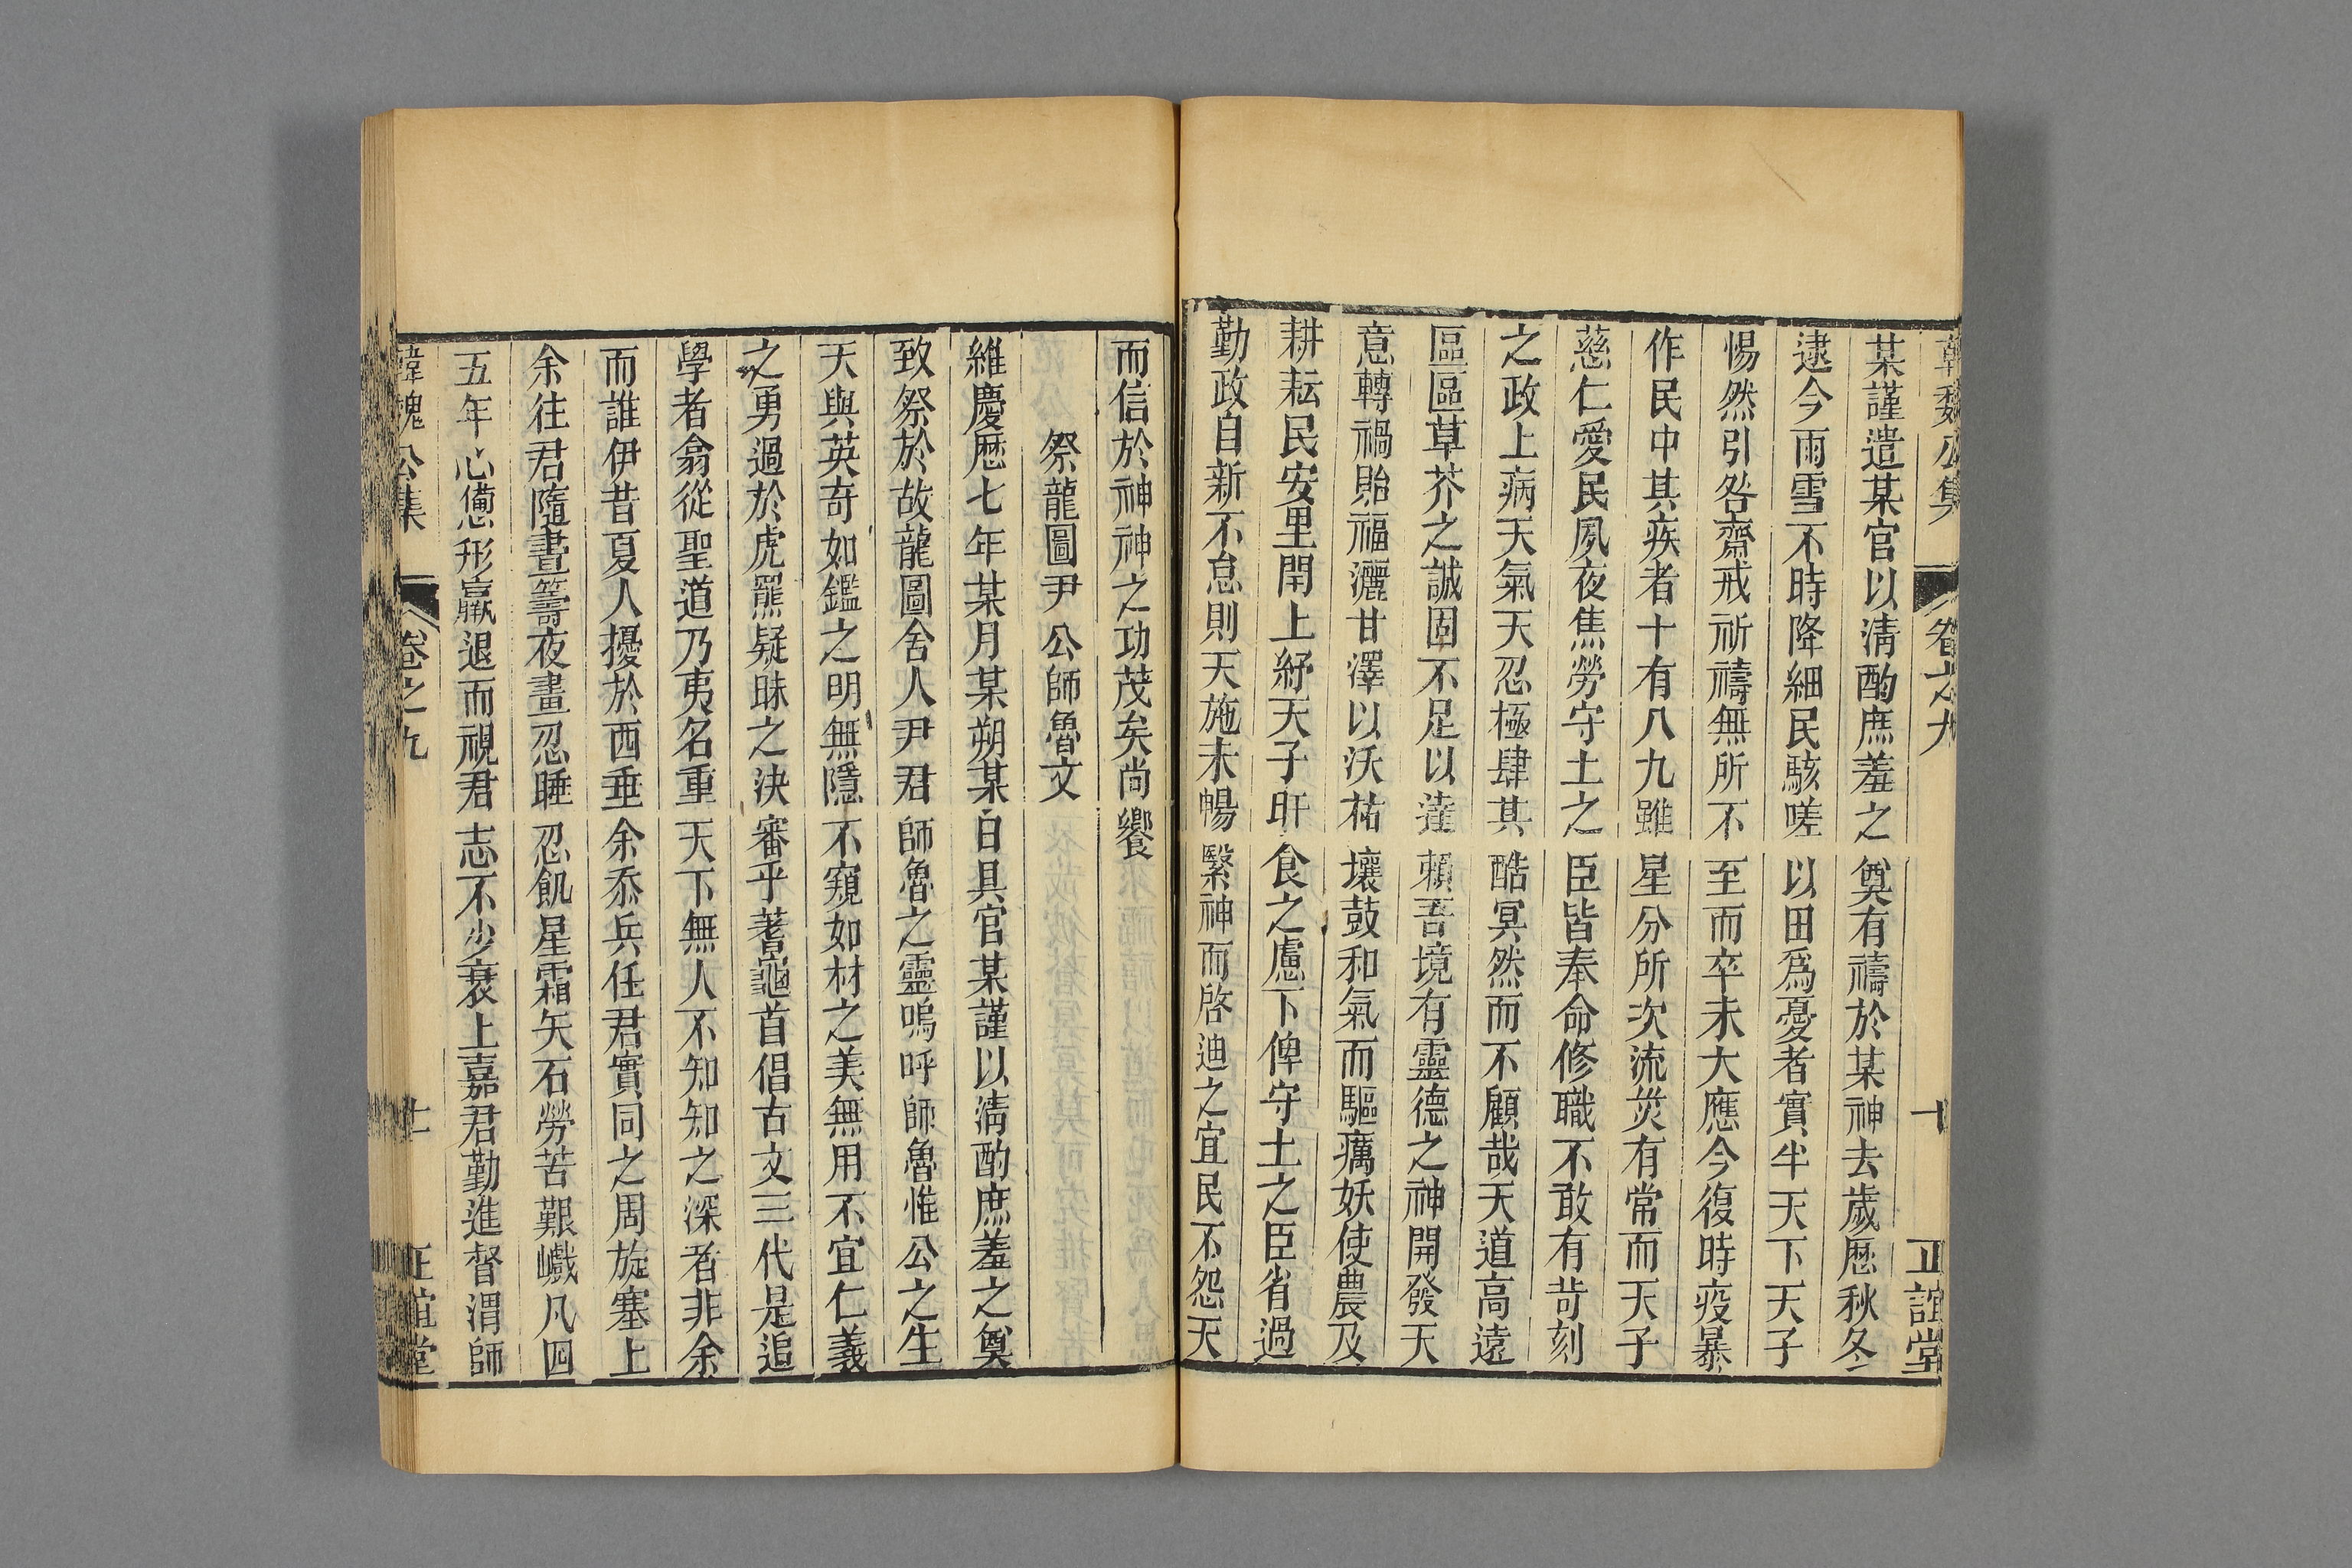 韓魏公集 卷之九 十 正誼堂
某謹遣某官以清酌庶羞之奠有禱於某神去歲歷秋冬
逮今雨雪不時降細民駭嗟以田爲憂者實半天下天子
惕然引咎齋戒祈禱無所不至而卒未大應今復時疫暴
作民中其疾者十有八九雖星分所次流災有常而天子
慈仁愛民夙夜焦勞守土之臣皆奉命修職不敢有苛刻
之政上病天氣天忍極肆其酷冥然而不顧哉天道高遠
區區草芥之誠固不足以達賴吾境有靈德之神開發天
意轉禍貽福灑甘澤以沃祜壤鼓和氣而驅癘妖使農及
耕耘民安里閈上紓天子旰食之慮下俾守土之臣省過
勤政自新不怠則天施未暢繄神而啓迪之宜民不怨天
而信於神神之功茂矣尚饗
祭龍圖尹公師魯文
維慶歷七年某月某朔某日具官某謹以清酌庶羞之奠
致祭於故龍圖舍人尹君師魯之靈嗚呼師魯惟公之生
天與英奇如鑑之明無隱不窺如材之美無用不宜仁義
之勇過於虎羆疑昧之決審乎蓍龜首倡古文三代是追
學者翕從聖道乃夷名重天下無人不知知之深者非余
而誰伊昔夏人擾於西垂余忝兵任君實同之周旋塞上
余往君隨晝籌夜畫忍睡忍飢星霜矢石勞苦艱巇凡四
五年心憊形羸退而視君志不少衰上嘉君勤進督渭師
韓魏公集 卷之九 十一 正誼堂